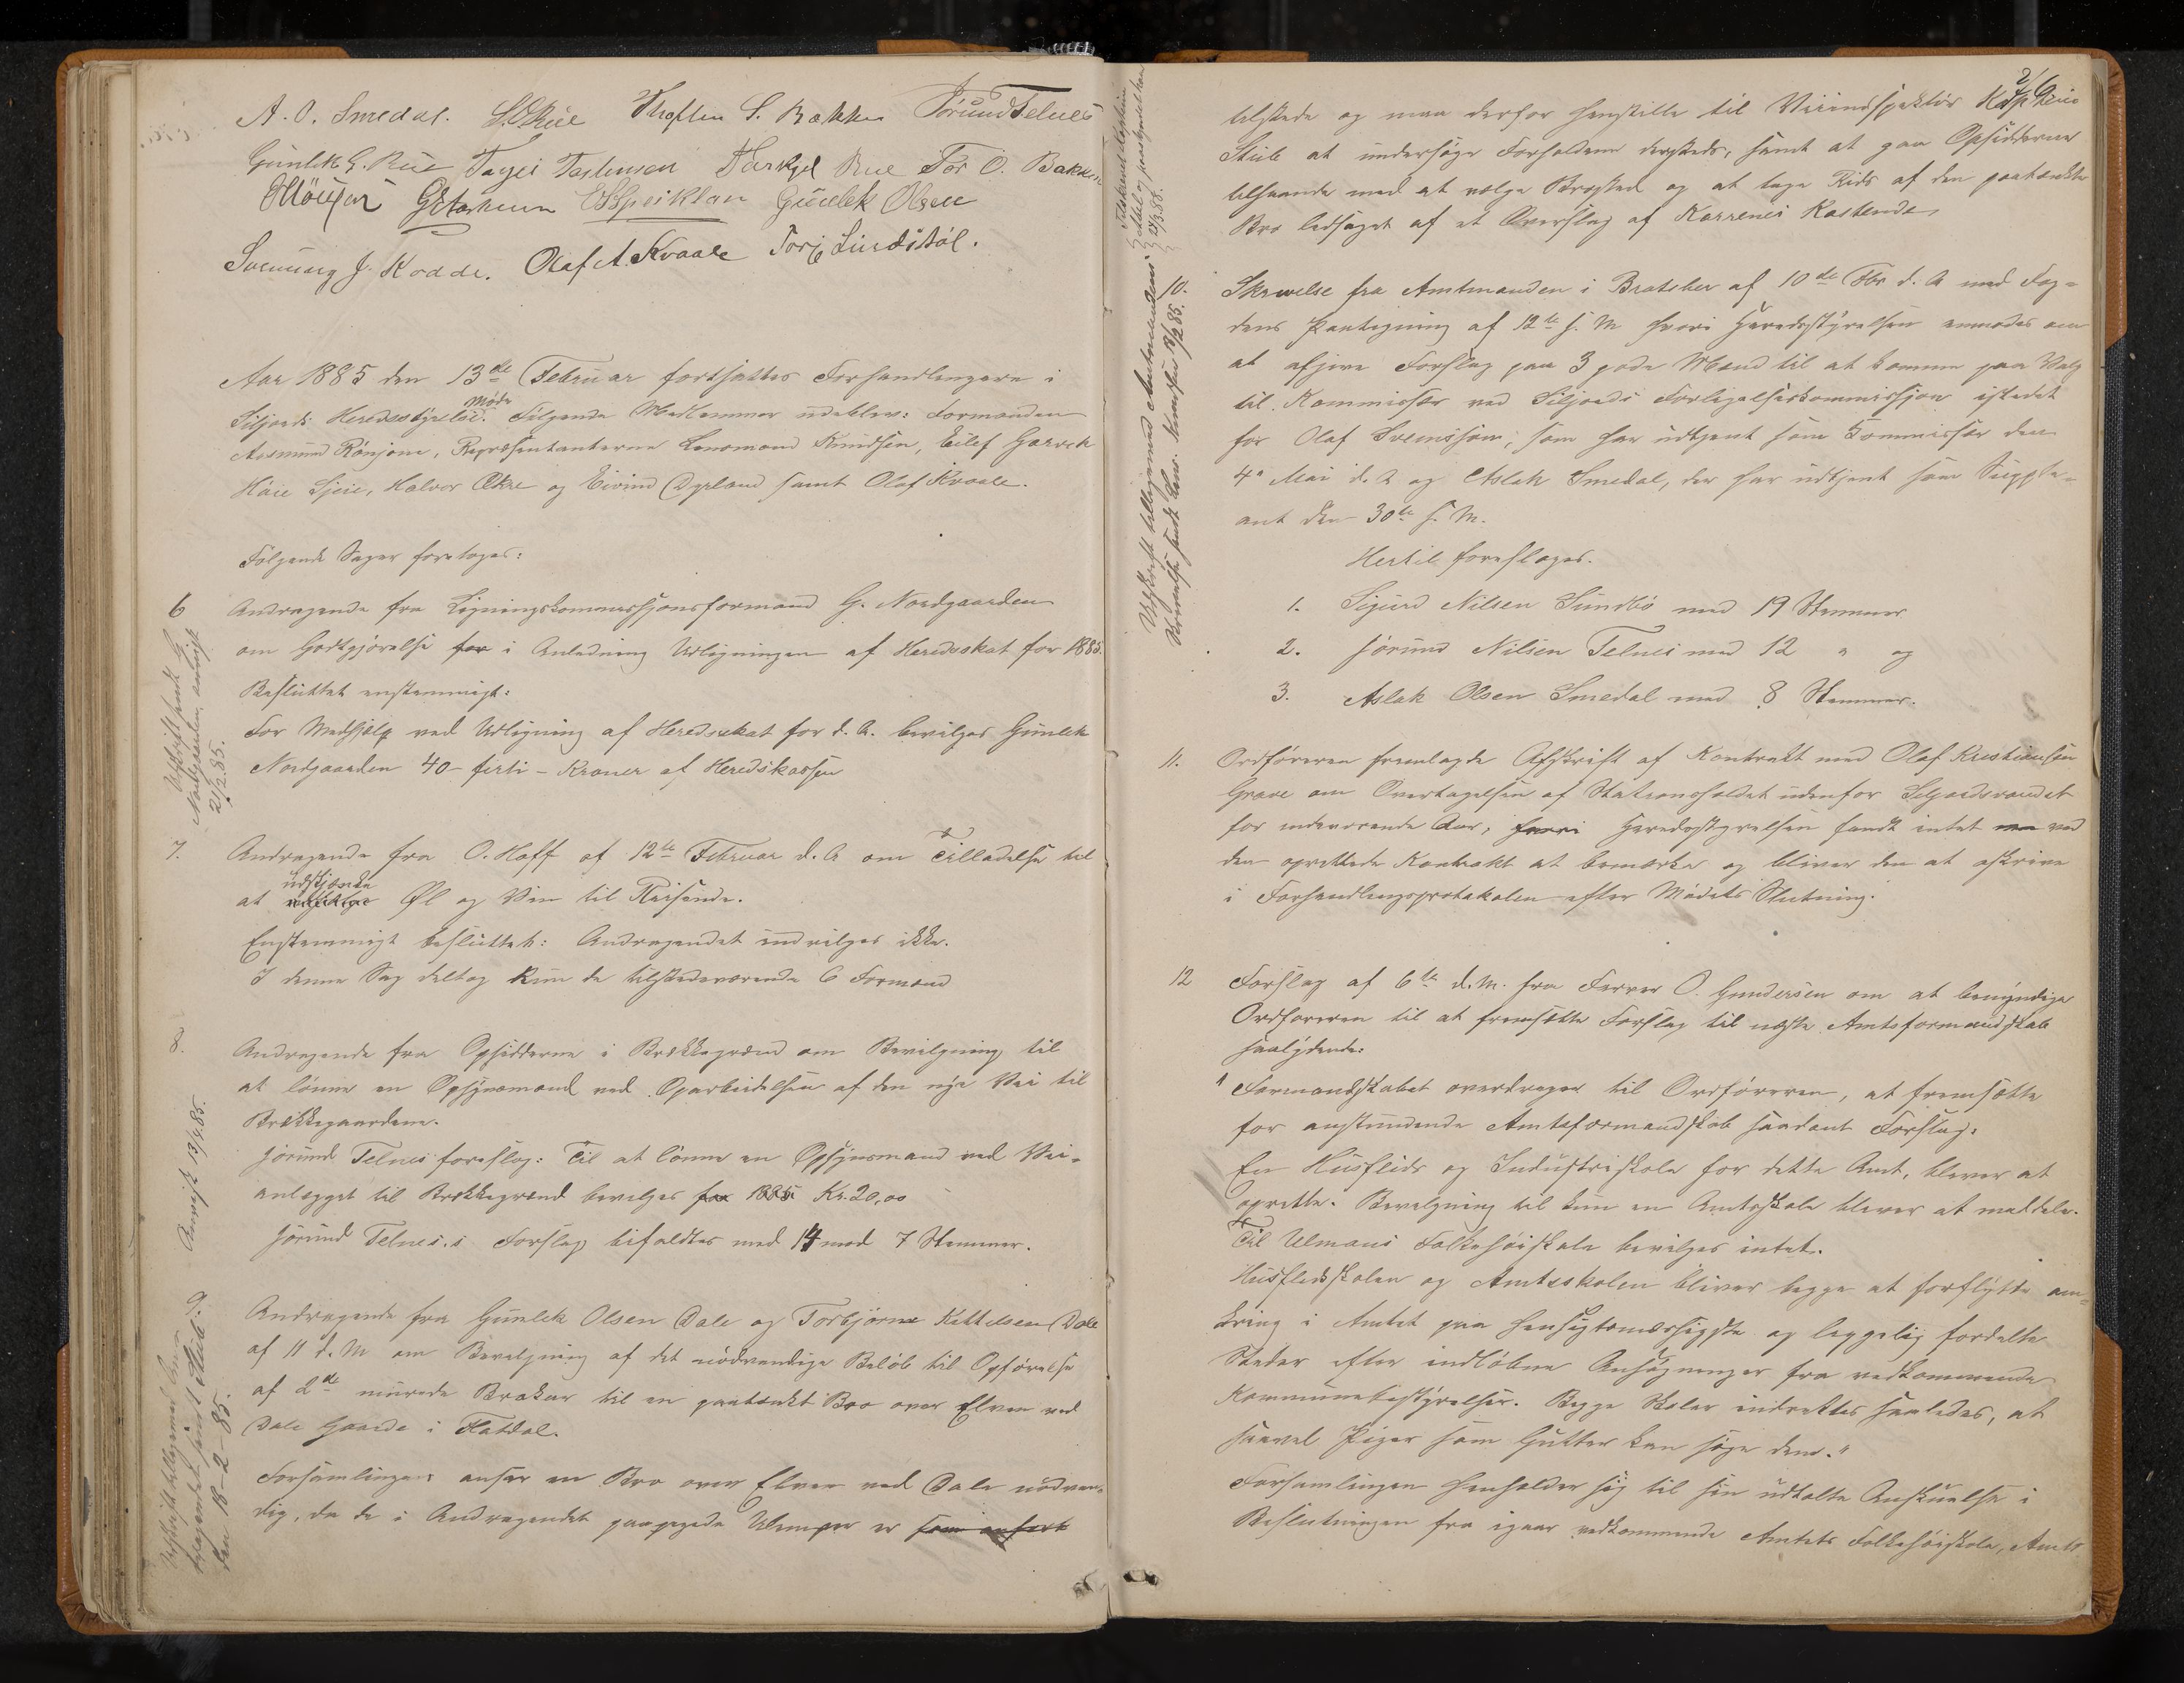 A. O. Smedal. S. O. Rue Thoften S. Bakken Jörund Telnes
Gunlek G. Rue Tarjei Taslensen Tarkjel Rue Tor O. Bakken
Gunlek Olsen
Svenung J. Kodde. Olaf A. Kvaale Torj Lindstöl.
Aar 1885 den 13de Februar fortsattes Forhandlingerne i
Møde
Siljords Heredsstyrelse. Følgende Medlemmer udeblev: Formanden
Aasmund Rönjone, Repræsentanterne Lensmand Knudsen, Eilef Garvek
Håie Sjeie, Halvor Økre og Eivind Dyrland samt Olaf Kvaale.
Følgende Sager foretoges:
6 Andragende fra Ligningskommissjonsformand G. Nordgaarden
om Godtgjørelse for i Anledning Udligningen af Heredsskat for 1885.
Besluttet enstemmigt:
For Medhjælp ved Udligning af Heredsskat for d. A. bevilges Gunlek
Nordgaarden 40 - firti - Kroner af Heredskassen
Udskrift sendt G.
Nordgaarden
21/2.85.
7. Andragende fra O. Hoff af 12te Februar d. A om Tilladelse til
udskjænke
at Øl og Vin til Reisende.
Enstemmigt besluttet: Andragendet indvilges ikke.
I denne Sag deltog kun de tilstedeværende 6 Formænd
8. Andragende fra Opsidderne i Brekkegrænd om Bevilgning til
at lönne en Opsynsmand ved Oparbeidelsen af den nye Vei til
Brekkegaardene.
Jörund Telnes foreslog: Til at lönne en Opsynsmand ved Vei-
anlægget til Brekkegrænd bevilges for 1885 Kr. 20,00
Jörund Telnes.s Forslag bifaldtes med 14 mod 7 Stemmer.
Anvist 13/4.85.
9. Andragende fra Gunlek Olsen Dale og Torbjørn Kittelsen Dale
af 11 d. M om Bevilgning af det nødvendige Beløb til Opførelse
af 2de murede Brokar til en paatænkt Bro over Elven ved
Dale Gaarde i Flatdal.
Forsamlingen anser en Bro over Elven ved Dale nødven-
dig, da de i Andragendet paapegede Ulemper er som anført
Udskrift tilligemed
dragendet sendt Stub
den 18-2-85.
2/6
tilstede og maa derfor henstille til Veiinspektör Kaptein
Stub at undersøge Forholdene dersteds, samt at gaa Opsidderne
tilhaande med at vælge Brosted og at tage Rids af den paatænkte
Bro ledsaget af et Overslag af Karrenes Kostende
23/3.85.
10. Skrivelse fra Amtmanden i Bratsber af 10de Fbr d. A med Fog-
dens Paategning af 12te s. M hvori Heredsstyrelsen anmodes om
at afgive Forslag paa 3 gode Mænd til at komme paa Valg
til Kommissær ved Siljords Forligelseskommissjon istedet
for Olaf Sveinsson, som har udtjent som Kommissær den
4de Mai d. A og Aslak Smedal, der har udtjent som Supple-
ant den 30te s. M.
Hertil foreslages.
1. Sigurd Nilsen Sundbö med 19 Stemmer
2. Jörund Nilsen Telnes med 12 " og
3. Aslak Olsen Smedal med 8 Stemmer.
Udskrift tilligemed Amtmandens
Skrivelse sendt 18/2 85.
11. Ordføreren fremlagde Afskrift af Kontrakt med Olaf Kristiansen
Grave om Overtagelsen af Stationsholdet udenfor Seljordsvandet
for indeværende Aar, hvori Heredsstyrelsen fandt intet ved
den oprettede Kontrakt at bemærke og bliver den at afskrive
i Forhandlingsprotokolen efter Mødets Slutning.
12 Forslag af 6te d. M. fra Ferver O. Gundersen om at bemyndige
Ordføreren til at fremsætte Forslag til næste Amtsformandskab
saalydende:
"Formandskabet overdrager til Ordføreren, at fremsætte
for anstundende Amtsformandskab saadant Forslag:
En Husflids og Industriskole for dette Amt, bliver at
oprette. Bevilgning til kun en Amtsskole bliver at meddele.
Til Ulmans Folkehøiskole bevilges intet.
Husflidsskolen og Amtsskolen bliver begge at forflytte om-
kring i Amtet paa hensigtsmæssigste og beqvemlig fordelte
Steder efter indløbne Ansøgninger fra vedkommende
Kommunebestyrelser. Begge Skoler indrettes saaledes, at
saavel Piger som Gutter kan søge dem."
Forsamlingen henholder sig til sin udtalte Anskuelse i
Beslutningen fra igaar vedkommende Amtets Folkehøiskole, Amts